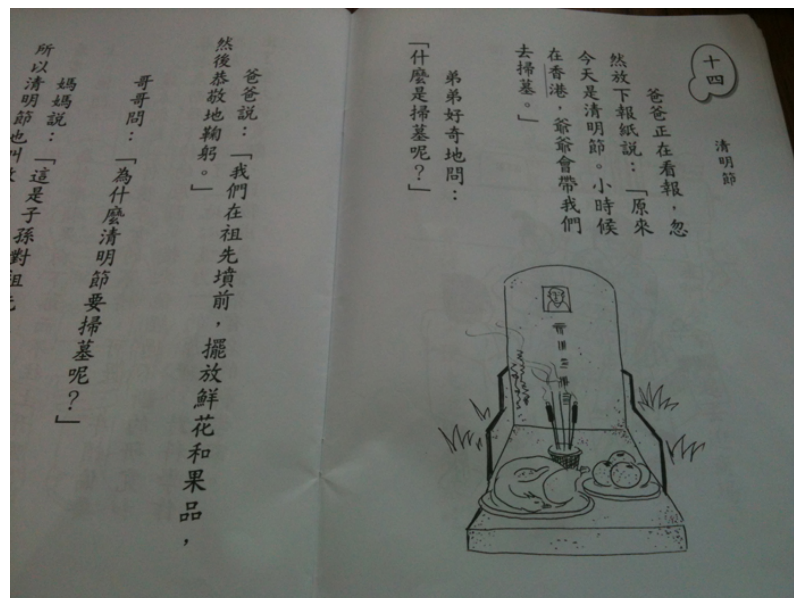 十四
清明節
爸爸正在看報,忽
然放下報紙說:「原來
今天是清明節。小時候
在香港,爺爺會帶我們
去掃墓。」
弟弟好奇地問:
「什麼是掃墓呢?」
爸爸說:「我們在祖先墳前,擺放鮮花和果品,
然後恭敬地鞠躬。」
哥哥問:「為什麼清明節要掃墓呢?」
媽媽說:「這是子孫對祖先
所以清明節也叫